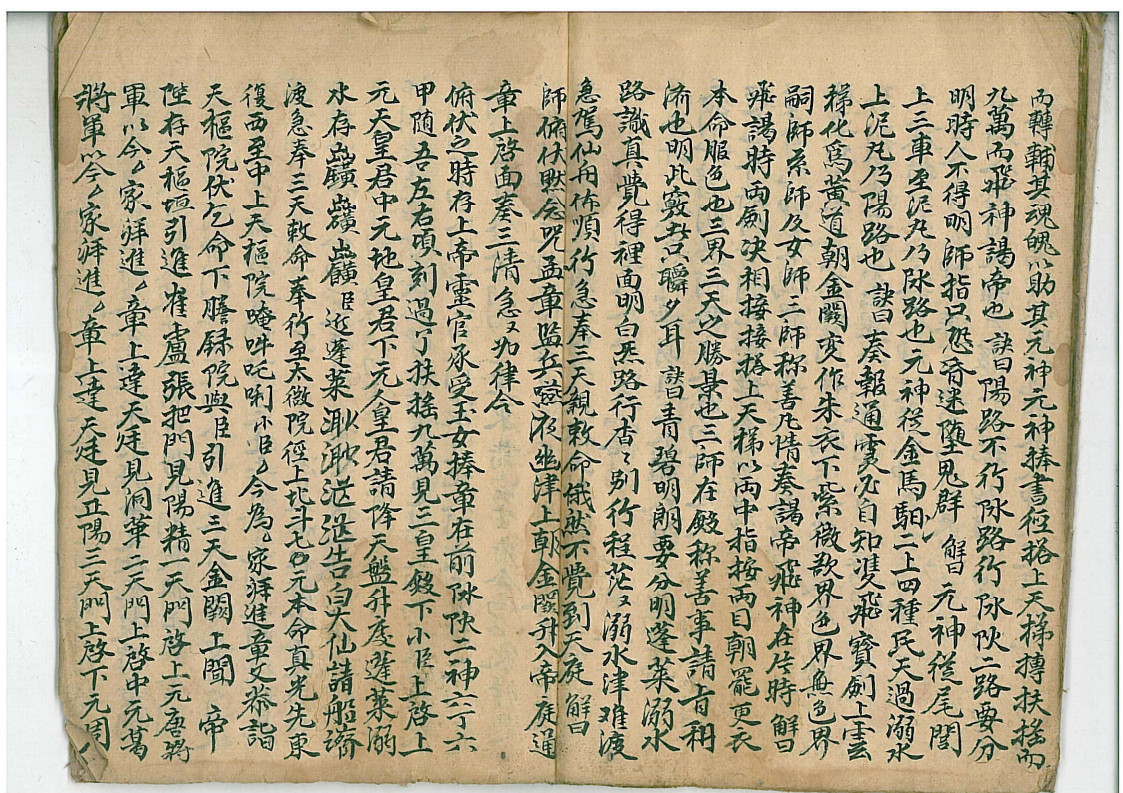 而轉輔其魂魄以助其元神元神捧書徑搭上天梯摶扶搖而
九萬而飛神謁帝也 訣曰陽路不行阦路行阦阦二路要分
明時人不得明師指只怨昏迷墮鬼群 解曰元神從尾閭
上三車至泥丸乃阦路也元神從金馬馹二上四種民天過溺水
上泥丸乃陽路也 訣曰奏報通靈不自知雙飛寶劍上雲
梯化為黃道朝金闕変作朱衣下紫微欲界色界無色界
嗣師系師及女師三師称善凡情奏謁帝飛神在片時 解曰
飛謁時両劍决相接接搭上天梯以両中指按両目朝罷更衣
本命服色也三界三天之勝景也三師在殿称善事請旨利
濟也明此竅 只瞬夕耳 訣曰青碧明朗要分明蓬萊溺水
路識真覺得裡面明白炁路行杳〻別行程茫〻溺水津难渡
急駕仙舟怍順行急奉三天親敕命俄然不覺到天庭 解曰
師俯伏黙念咒孟章監兵 液幽津上朝金闕升入帝庭通
章上啓面奏三清急〻如律令
俯伏之時存上帝靈官 受玉女捧章在前阦阦二神六丁六
甲随吾左右頃刻過了扶搖九萬見三皇殿下小臣上啓上
元天皇君中元地皇君下元人皇君請降天盤升度蓬萊溺
水存 臣近蓬萊 湛湛告白大仙諸船濟
渡急奉三天敕命奉行至太微院徑上北斗七 元本命真光先東
復西至中上天樞院唵吽吒唎小臣〻今為〻家拜進章文恭詣
天樞院伏乞命下謄録院與臣引進三天金闕上聞 帝
陛存天樞 引進崔盧張把門見陽精一天門啓上元唐將
軍以今〻家拜進〻章上達天廷見洞筆二天門上啓中元葛
將軍以今〻家拜進〻章上達天廷見丑陽三天門上啓下元周